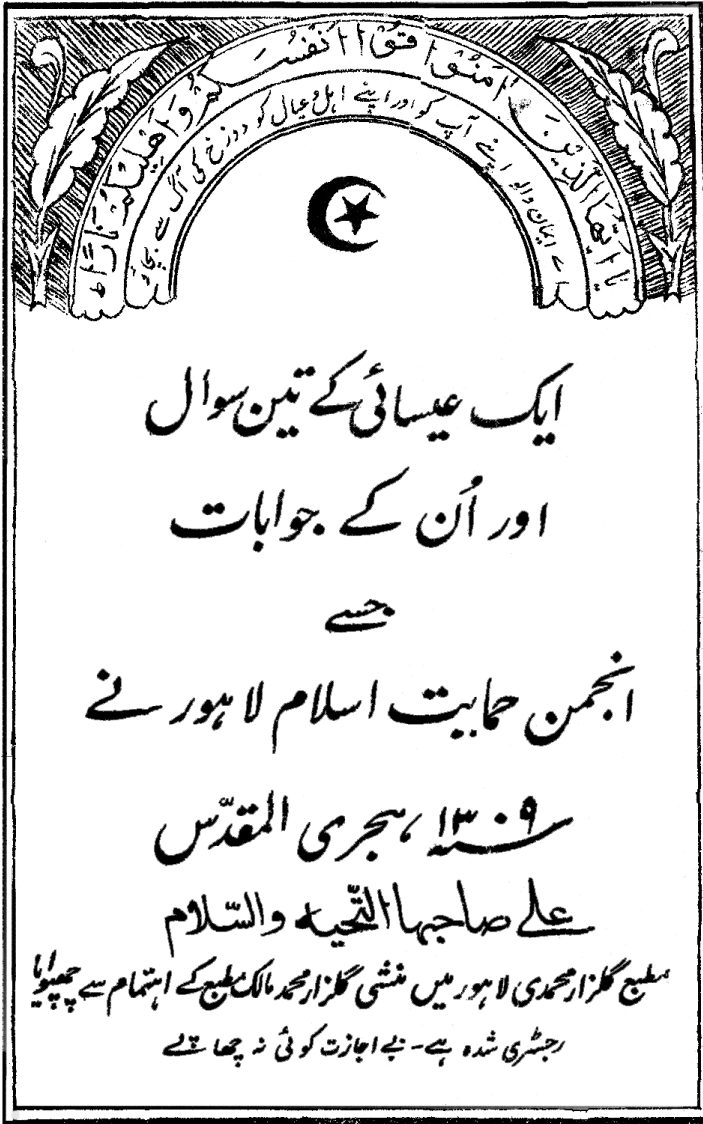 یا ایھا الذین اٰمنوا قوا انفسکم و اھلیکم نارا
اے ایمان والو اپنے آپ کو اور اپنے اہل و عیال کو دوزخ کی آگ سے بچاؤ
ایک عیسائی کے تین سوال
اور اُن کے جوابات
جسے
انجمن حمایت اسلام لاہور نے
۱۳۰۹؁ ہجری المقدّس
علےٰ صاحبہا التحیۃ والسّلام
مطبع گلزار محمدی لاہور میں منشی گلزار محمد مالک مطبع کے اہتمام سے چھپوایا
رجسٹری شدہ ہے۔ بے اجازت کوئی نہ چھاپے